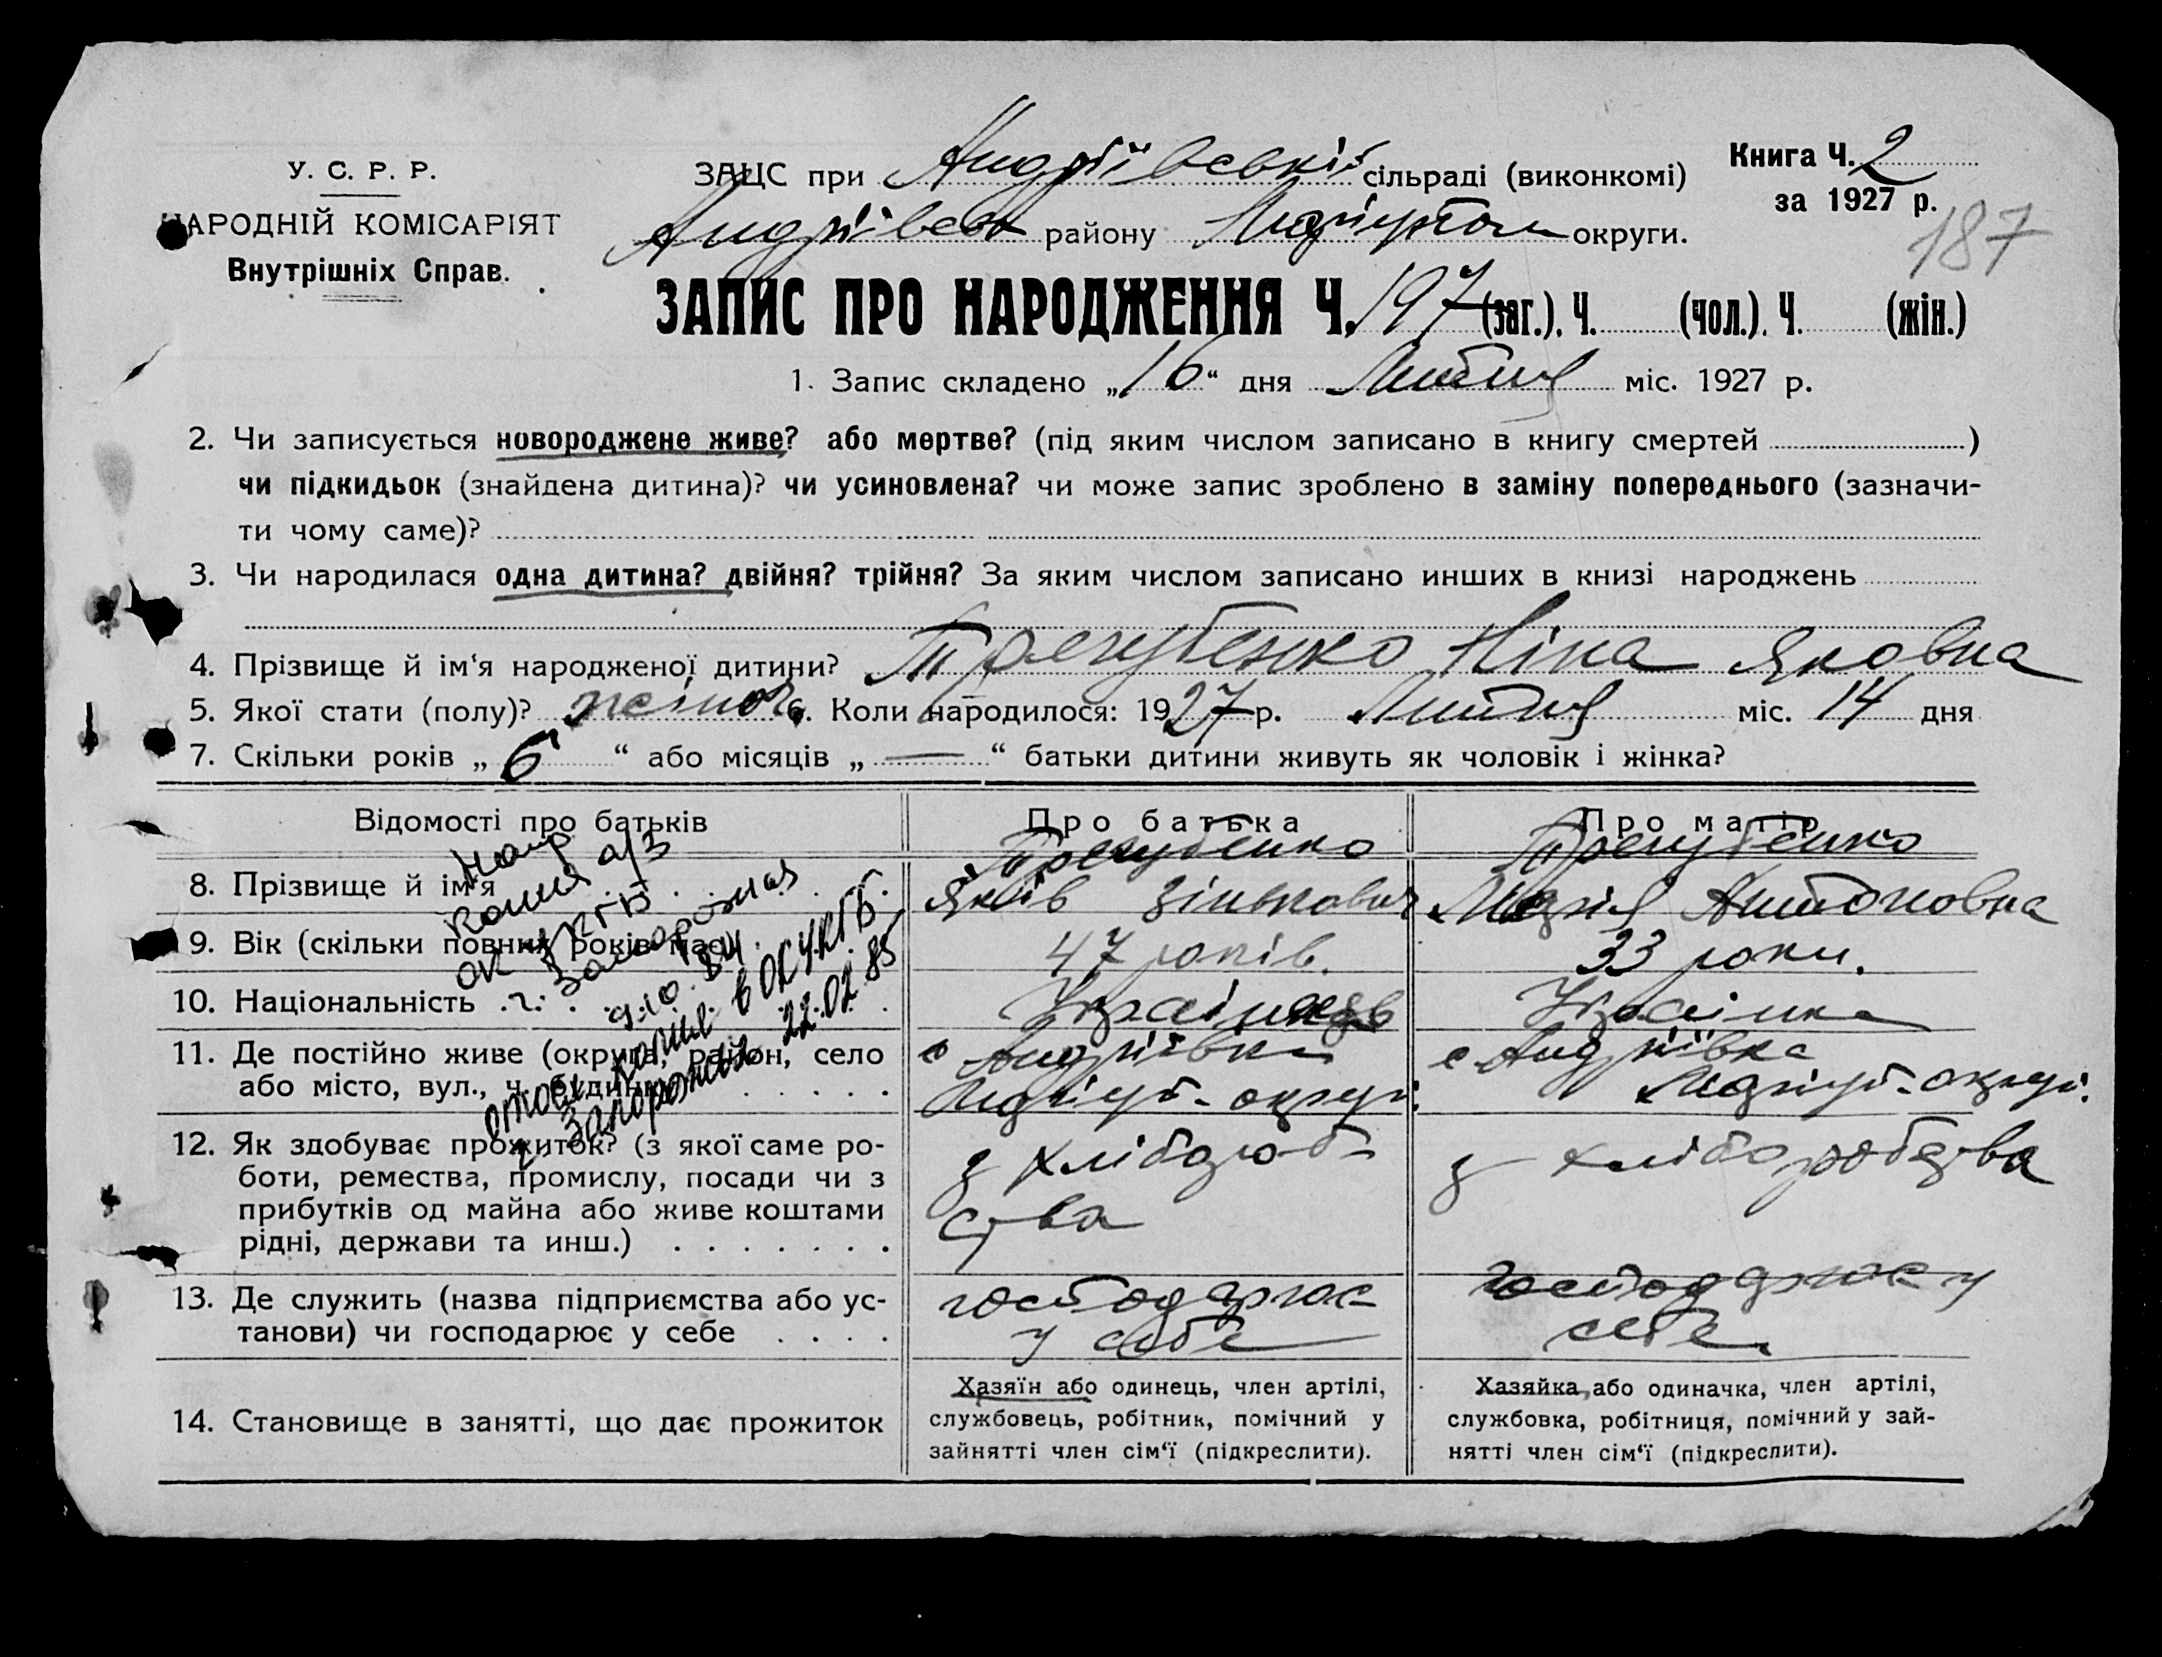 У. С. Р. Р.
НАРОДНІЙ КОМІСАРІЯТ
Внутрішніх Справ.
ЗАЦС при Андріївській сільраді (виконкомі)
Андріївськ району Маріупол округи.
Книга Ч. 2
за 1927 р.
187
ЗАПИС ПРО НАРОДЖЕННЯ Ч. 197 (заг.). Ч. (чол.). Ч. (жін.)
1. Запис складено „16“ дня Липня міс. 1927 р.
2. Чи записується новороджене живе? або мертве? (під яким числом записано в книгу смертей )
чи підкидьок (знайдена дитина)? чи усиновлена? чи може запис зроблено в заміну попереднього (зазначи-
ти чому саме)?
3. Чи народилася одна дитина? двійня? трійня? За яким числом записано инших в книзі народжень
4. Прізвище й ім‘я народженої дитини? Ніна Яковна
5. Якої стати (полу)? жіноч 6. Коли народилося: 1927 р. Липня міс. 14 дня
7. Скільки років „6“ або місяців „—“ батьки дитини живуть як чоловік і жінка?
Відомості про батьків
Про батька
Про матір
8. Прізвище й ім‘я
Яків Зінькович
Марія Антоновна
9. Вік (скільки повних років має)
47 років.
33 роки.
10. Національність
Українець
Українка
11. Де постійно живе (округа, район, село
або місто, вул., ч. будинку)
с Андріївка
Маріуп-округ.
с Андріївка
Маріуп-округ.
12. Як здобуває прожиток? (з якої саме ро-
боти, ремества, промислу, посади чи з
прибутків од майна або живе коштами
рідні, держави та инш.)
з хлібороб-
ства
з хліборобства
13. Де служить (назва підприємства або ус-
танови) чи господарює у себе
господарює
у себе
господарює у
себе
14. Становище в занятті, що дає прожиток
Хазяїн або одинець, член артілі,
службовець, робітник, помічний у
зайнятті член сім‘ї (підкреслити).
Хазяйка або одиначка, член артілі,
службовка, робітниця, помічний у зай-
нятті член сім‘ї (підкреслити).
копия а/з
г. Запорожья
9.10.84
копия в ОС УКГБ
г. Запорожья 22.02.85